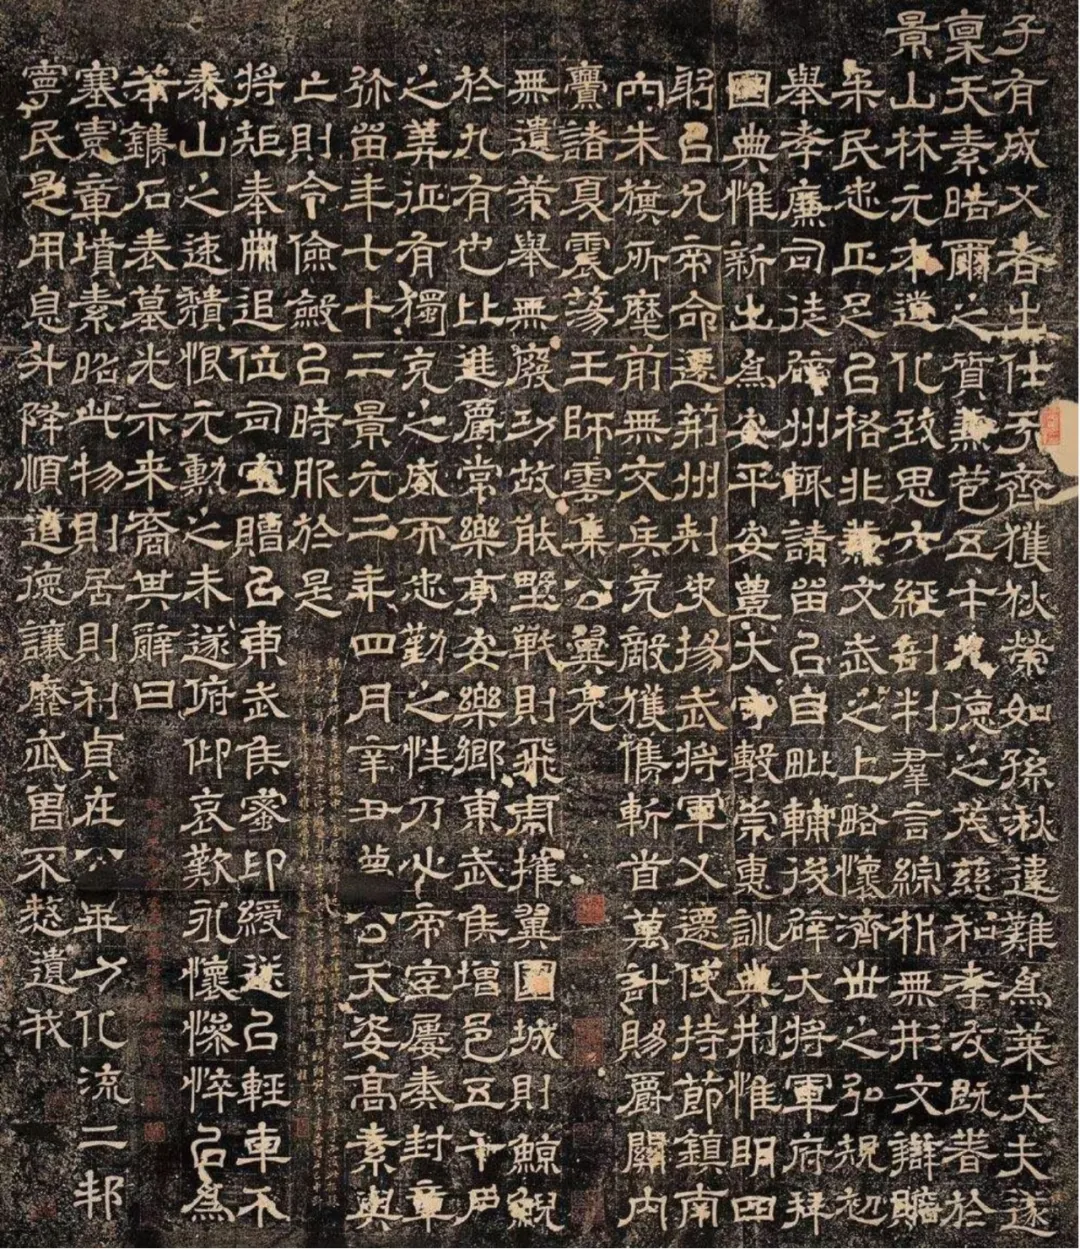 子有成父者出仕于齊獲狄榮如孫湫違難為萊大夫遂
稟天素皓爾之質兼苞五才九德之茂慈和孝友既著於
景山林元本道化致思六經剖判羣言綜析無形文辯贍
民忠正足㠯格非兼文武之上略懷濟世之弘規初
舉孝廉司徒辟州輒請留㠯自毗輔後辟大將軍府拜
國典惟新出為安平安豐太守敷崇惠訓典制惟明四
躬㠯允帝命遷荊州刺史揚武將軍又遷使持節鎮南
內朱旗所麾前無交兵克敵獲儁斬首萬計賜爵關內
釁諸夏震蕩王師雲集公翼亮
無遺策舉無廢功故能野戰則飛虎摧翼圍城則鯨鯢
於九有也比進爵常樂亭安樂鄉東武侯增邑五千戶
之美征有獨克之威而忠勤之性乃心帝室屢奏封章
弥留年七十二景元二年四月辛丑薨公天姿高素與
亡則令儉斂㠯時服於是
將矩奉冊追位司空贈㠯東武侯蜜印綬送㠯輕車不
泰山之速穨恨元勳之未遂俯仰哀歎永懷慘悴㠯為
若鐫石表墓光示來裔其辭曰
塞憲章墳素昭此物則居則利貞在公畢力化流二邦
寧民是用息升降順道德讓靡忒曾不憖遺我